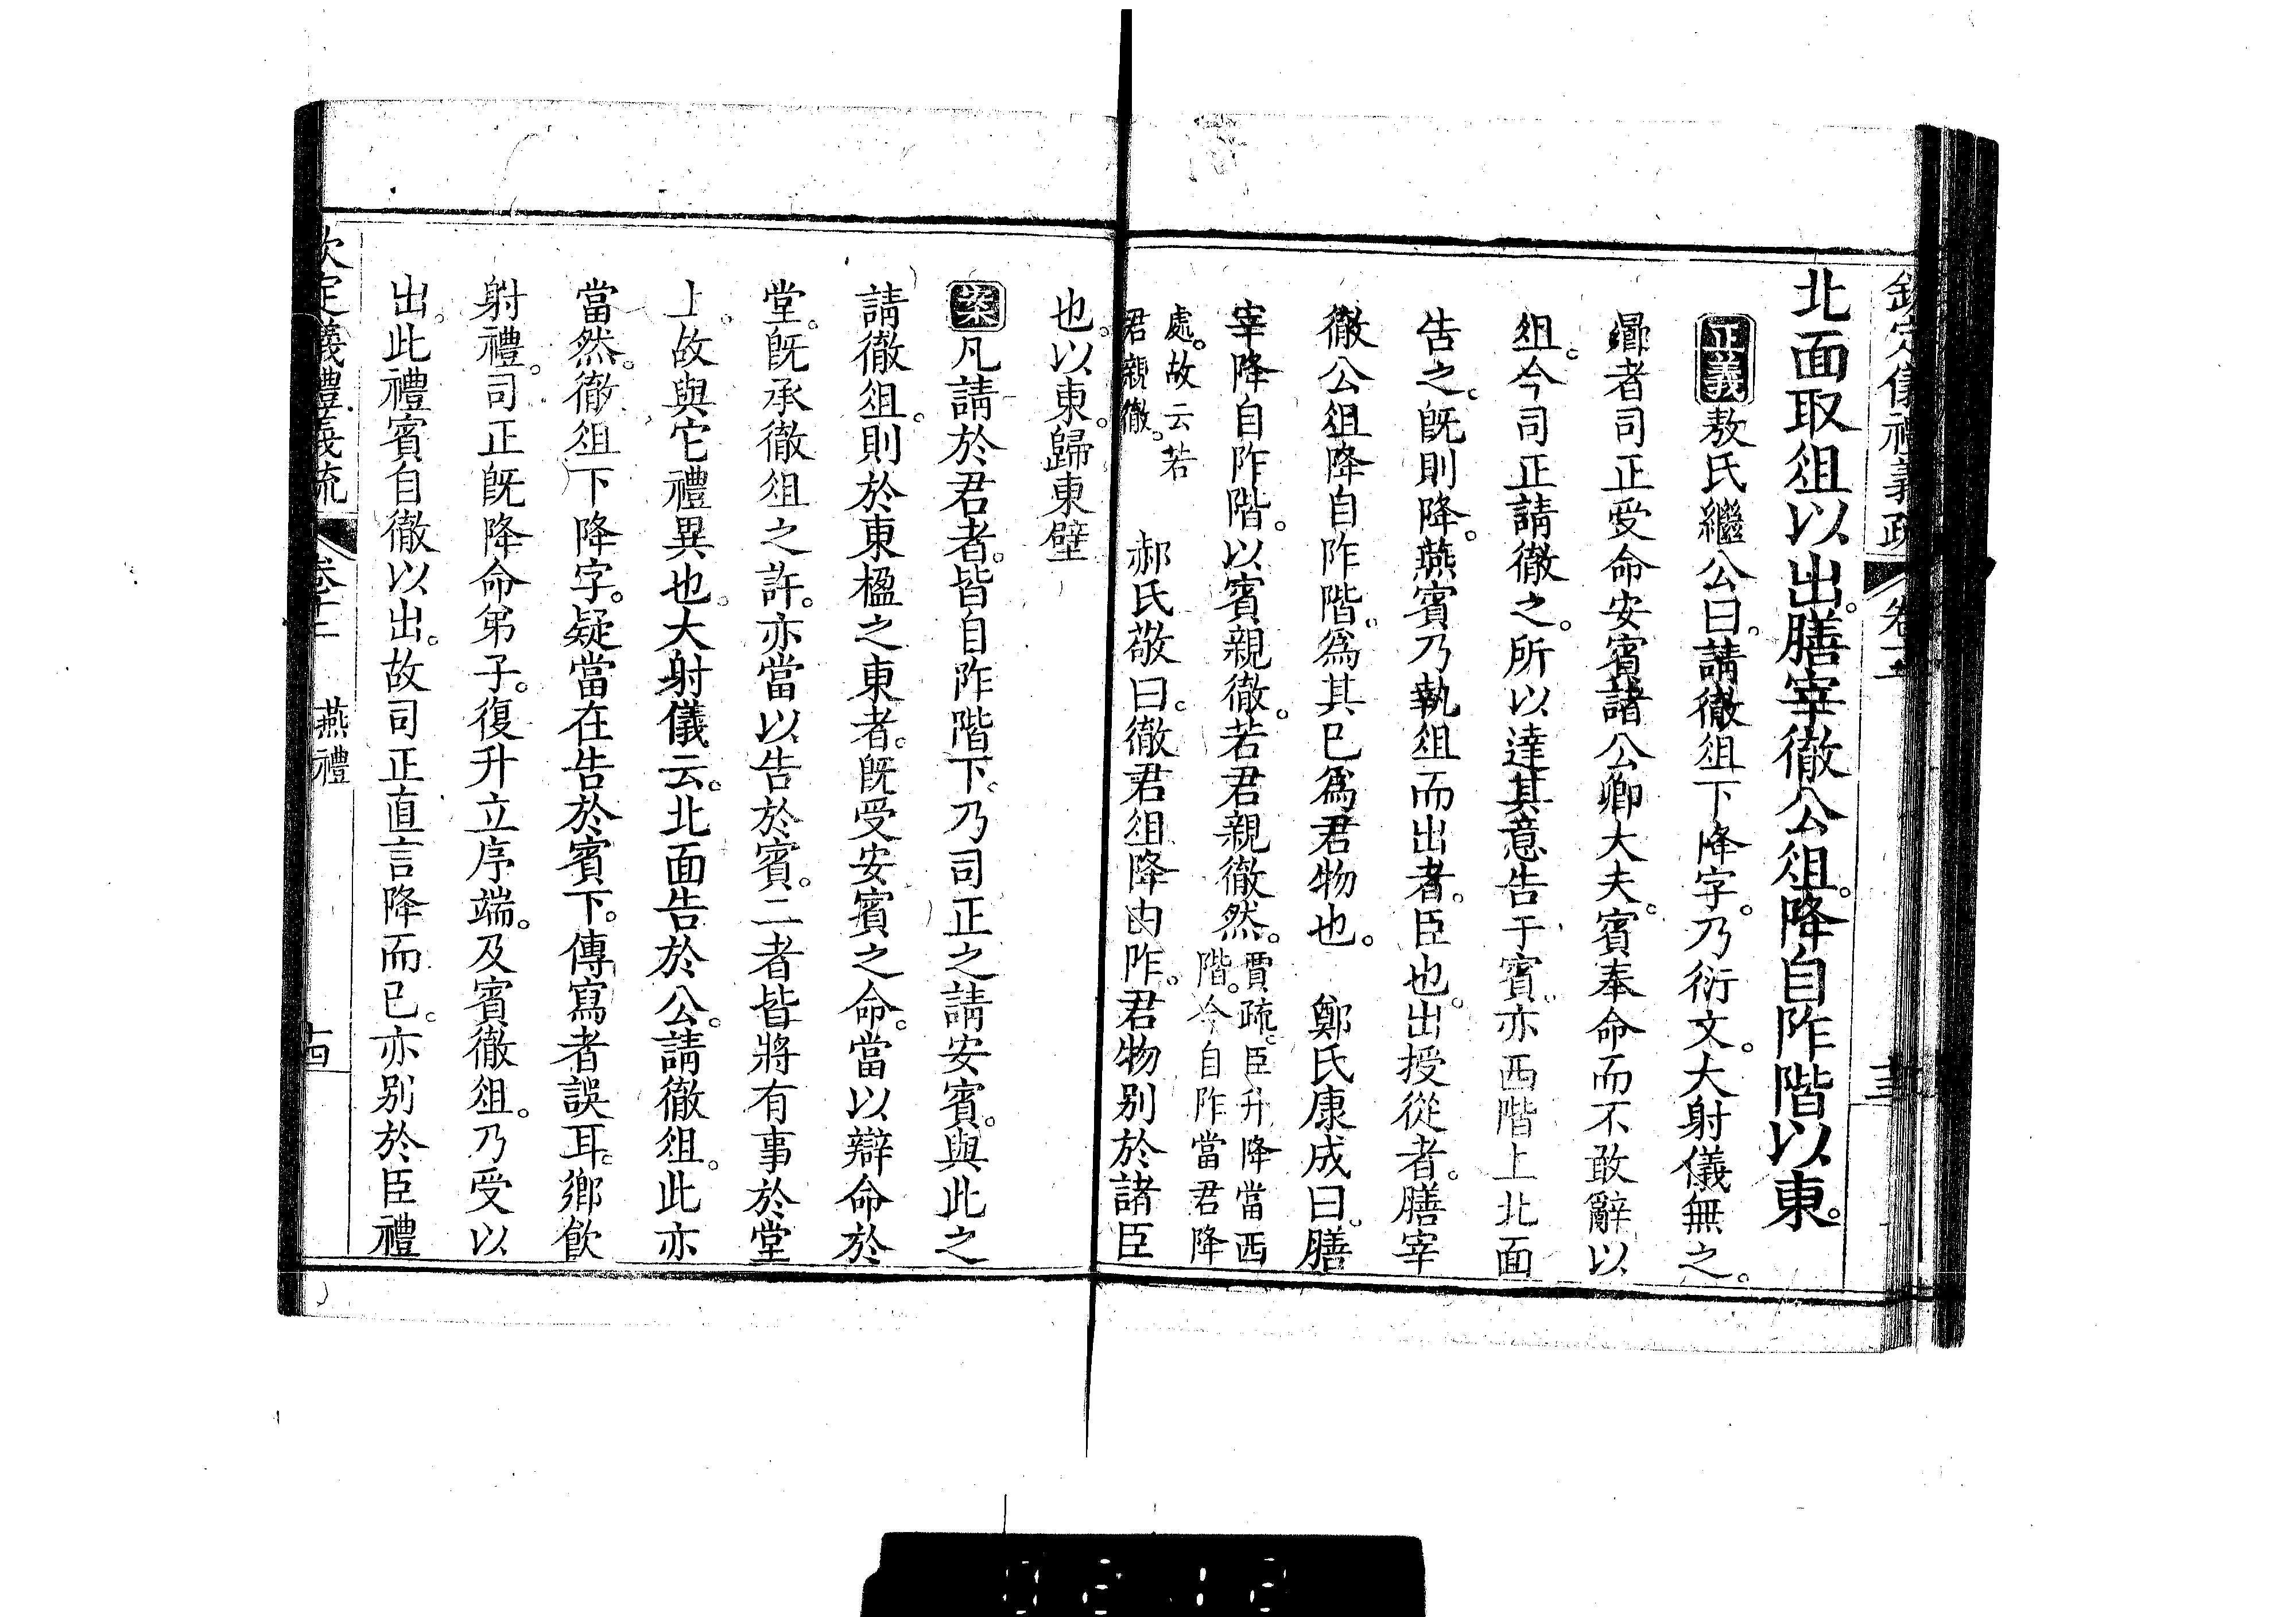 欽定儀禮義疏 卷十二 十三
北面取俎以出。膳宰徹公俎。降自阼階以東。
正義敖氏繼公曰。請徹俎下降字。乃衍文。大射儀無之。
曏者司正受命安賓諸公卿大夫。賓奉命而不敢辭以
俎。今司正請徹之。所以達其意告于賓。亦西階上北面
告之。既則降。燕賓乃執俎而出者。臣也。出授從者。膳宰
徹公俎降自阼階。為其已為君物也。 鄭氏康成曰。膳
宰降自阼階。以賓親徹。若君親徹然。賈疏。臣升降當西
階。今自阼當君降
處。故云若
君親徹。 郝氏敬曰。徹君俎降由阼。君物別於諸臣
也。以東。歸東壁
案凡請於君者。皆自阼階下。乃司正之請安賓。與此之
請徹俎。則於東楹之東者。既受安賓之命。當以辯命於
堂。既承徹俎之許。亦當以告於賓。二者皆將有事於堂
上。故與它禮異也。大射儀云。北面告於公。請徹俎。此亦
當然。徹俎下降字。疑當在告於賓下。傳寫者誤耳。鄉飲
射禮。司正既降命弟子。復升立序端。及賓徹俎。乃受以
出。此禮賓自徹以出。故司正直言降而已。亦別於臣禮
欽定儀禮義疏 卷十二 燕禮 十四